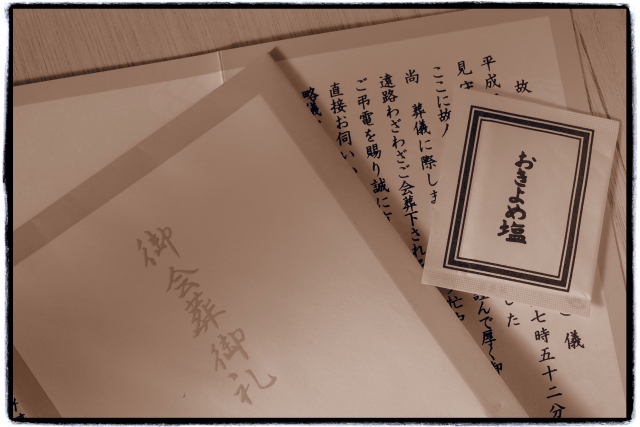 故
儀
平成
七時五十二分
見守
した
ここに故
尚 葬儀に際しま
遠路わざわざご会葬下され
ご弔電を賜り誠に
直接お伺い
略儀
んで厚く御
おきよめ塩
御会葬御礼